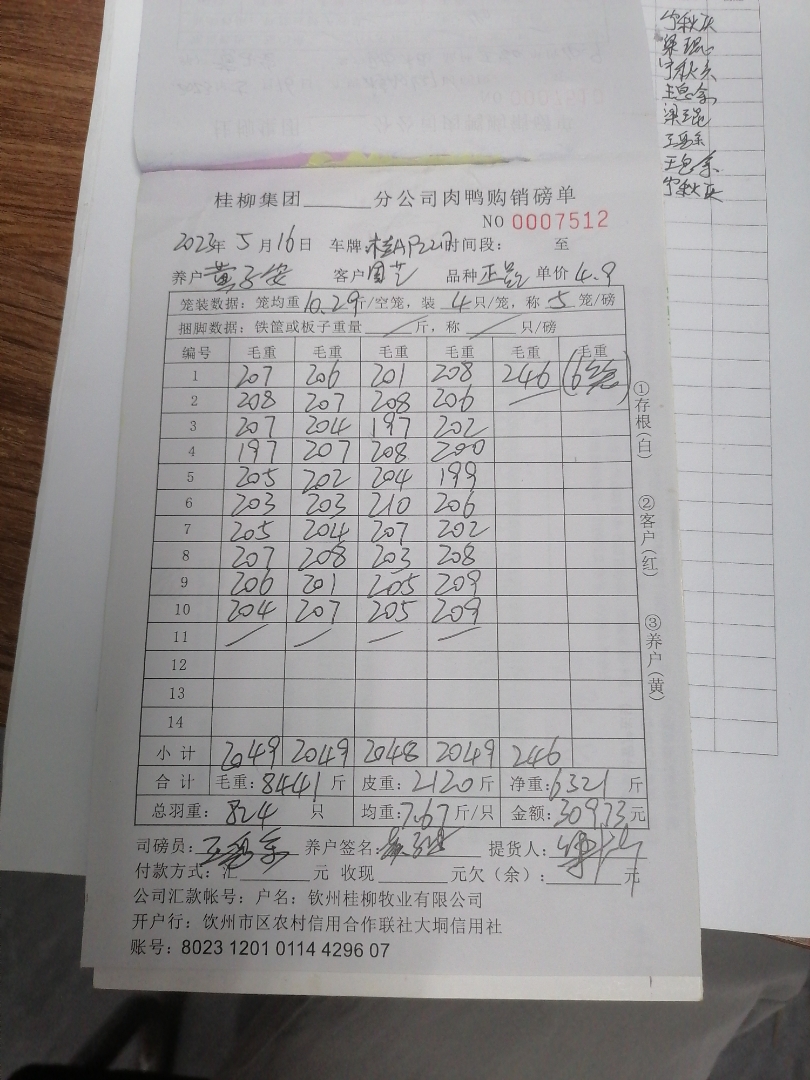 宁秋庆
梁琨
宁秋庆
王恩余
梁琨
王恩余
王恩余
宁秋庆
桂柳集团______分公司肉鸭购销磅单
NO 0007512
2023年 5 月 16 日 车牌: 时间段: 至
养户 黄子安 客户 周芝 品种 正品 单价 4.9
笼装数据: 笼均重 10.29 斤/空笼, 装 4 只/笼, 称 5 笼/磅
捆脚数据: 铁筐或板子重量 / 斤, 称 / 只/磅
编号 毛重 毛重 毛重 毛重 毛重 毛重
1 207 206 201 208 246 (6笼)
2 208 207 208 206 /
3 207 204 197 202
4 197 207 208 200
5 205 202 204 199
6 203 203 210 206
7 205 204 207 202
8 207 208 203 208
9 206 201 205 209
10 204 207 205 209
11 / / / /
12
13
14
小计 2049 2049 2048 2049 246
合计 毛重: 8441 斤 皮重: 2120 斤 净重: 6321 斤
总羽重: 824 只 均重: 7.67 斤/只 金额: 30973 元
司磅员: 王恩余 养户签名: 黄子安 提货人:
付款方式: 汇______元 收现______元欠（余）:______元
公司汇款帐号: 户名: 钦州桂柳牧业有限公司
开户行: 钦州市区农村信用合作联社大垌信用社
账号: 8023 1201 0114 4296 07
①存根（白）
②客户（红）
③养户（黄）